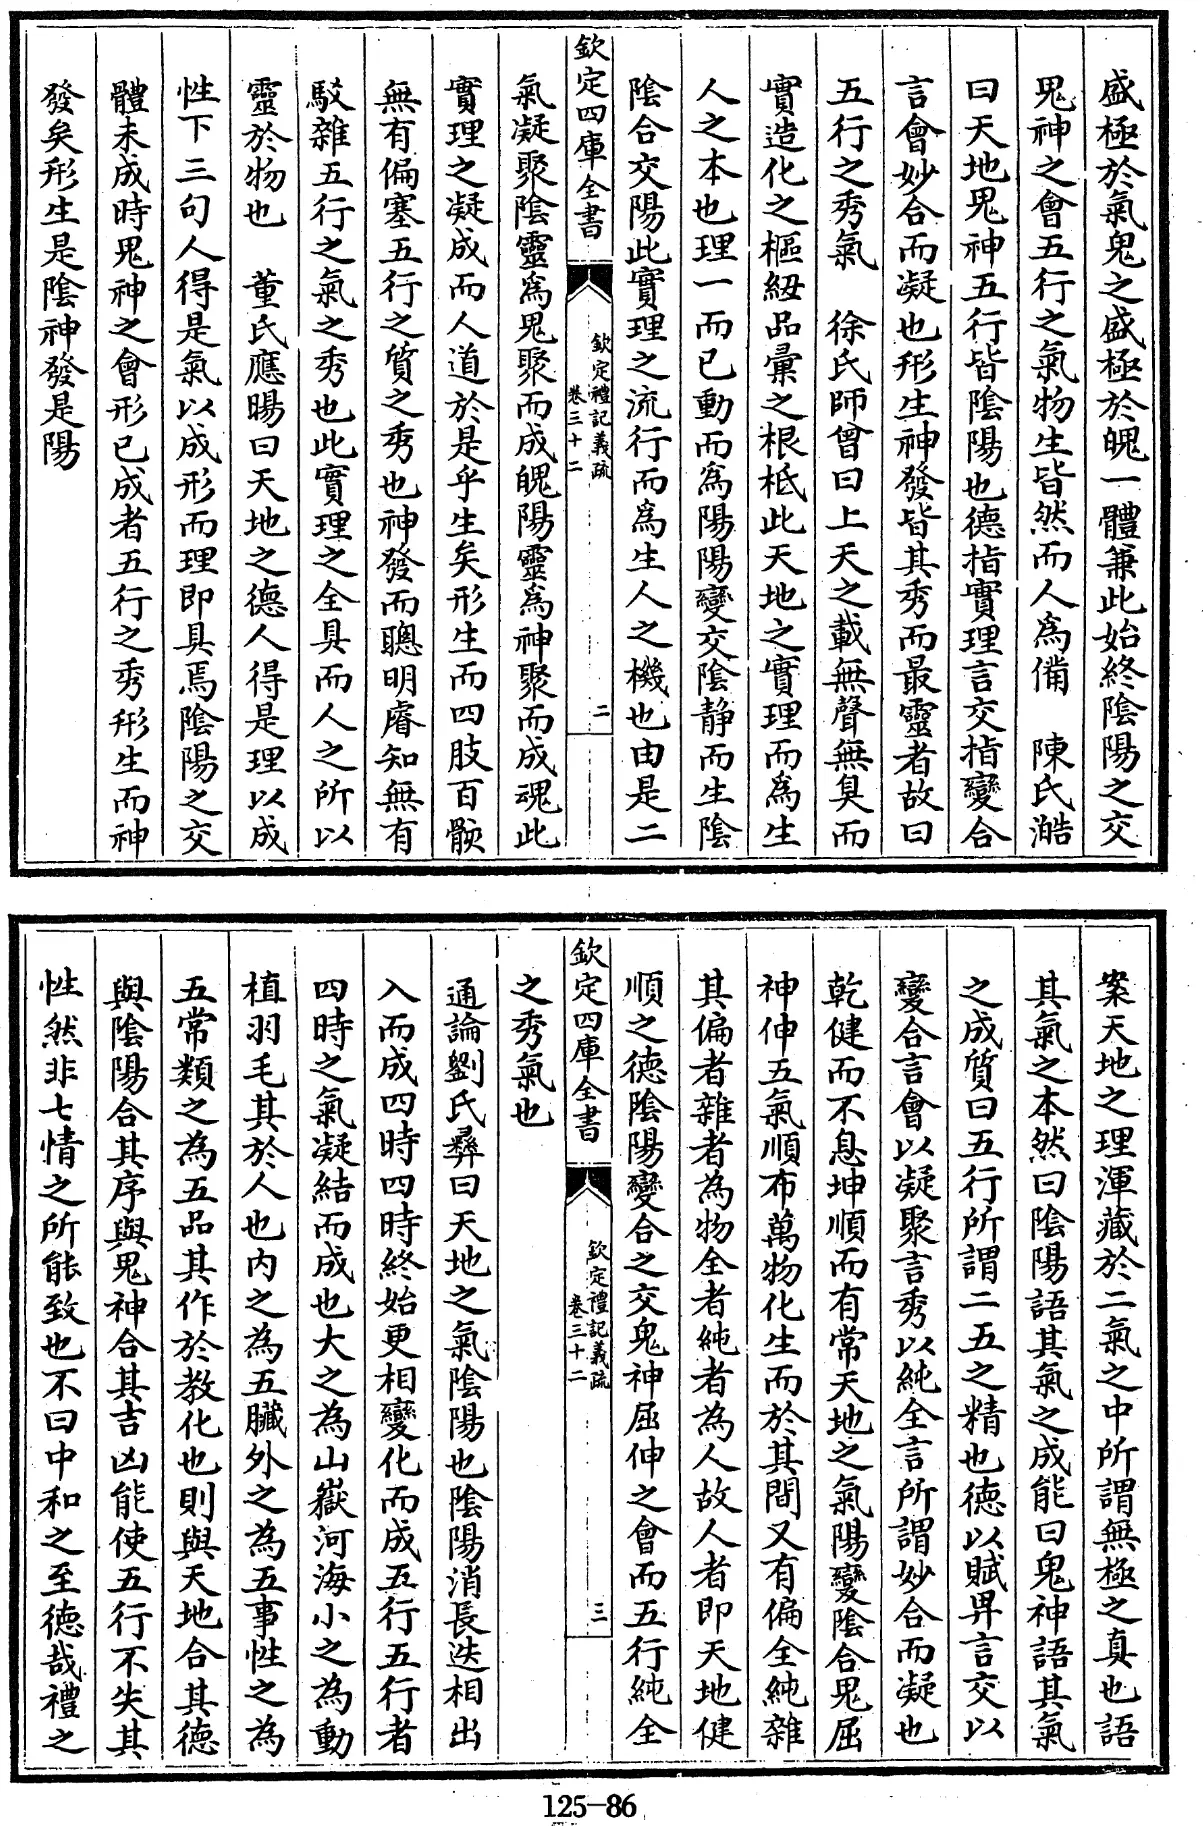 盛極於氣鬼之盛極於魄一體兼此始終陰陽之交
鬼神之會五行之氣物生皆然而人爲備　陳氏澔
曰天地鬼神五行皆陰陽也德指實理言交指變合
言會妙合而凝也形生神發皆其秀而最靈者故曰
五行之秀氣　徐氏師曾曰上天之載無聲無臭而
實造化之樞紐品彙之根柢此天地之實理而爲生
人之本也理一而已動而爲陽陽變交陰靜而生陰
陰合交陽此實理之流行而爲生人之機也由是二
欽定四庫全書
欽定禮記義疏
卷三十二
二
氣凝聚陰靈爲鬼聚而成魄陽靈爲神聚而成魂此
實理之凝成而人道於是乎生矣形生而四肢百骸
無有偏塞五行之質之秀也神發而聰明睿知無有
駁雜五行之氣之秀也此實理之全具而人之所以
靈於物也　董氏應暘曰天地之德人得是理以成
性下三句人得是氣以成形而理即具焉陰陽之交
體未成時鬼神之會形已成者五行之秀形生而神
發矣形生是陰神發是陽
案天地之理渾藏於二氣之中所謂無極之真也語
其氣之本然曰陰陽語其氣之成能曰鬼神語其氣
之成質曰五行所謂二五之精也德以賦畀言交以
變合言會以凝聚言秀以純全言所謂妙合而凝也
乾健而不息坤順而有常天地之氣陽變陰合鬼屈
神伸五氣順布萬物化生而於其間又有偏全純雜
其偏者雜者為物全者純者為人故人者即天地健
順之德陰陽變合之交鬼神屈伸之會而五行純全
欽定四庫全書
欽定禮記義疏
卷三十二
三
之秀氣也
通論劉氏彝曰天地之氣陰陽也陰陽消長迭相出
入而成四時四時終始更相變化而成五行五行者
四時之氣凝結而成也大之為山嶽河海小之為動
植羽毛其於人也内之為五臟外之為五事性之為
五常類之為五品其作於教化也則與天地合其德
與陰陽合其序與鬼神合其吉凶能使五行不失其
性然非七情之所能致也不曰中和之至德哉禮之
125-86